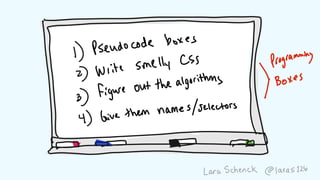 1) Pseudocode boxes
2) Write smelly CSS
3) Figure out the algorithms
4) Give them names/selectors
Programming
Boxes
Lara Schenck @laras126